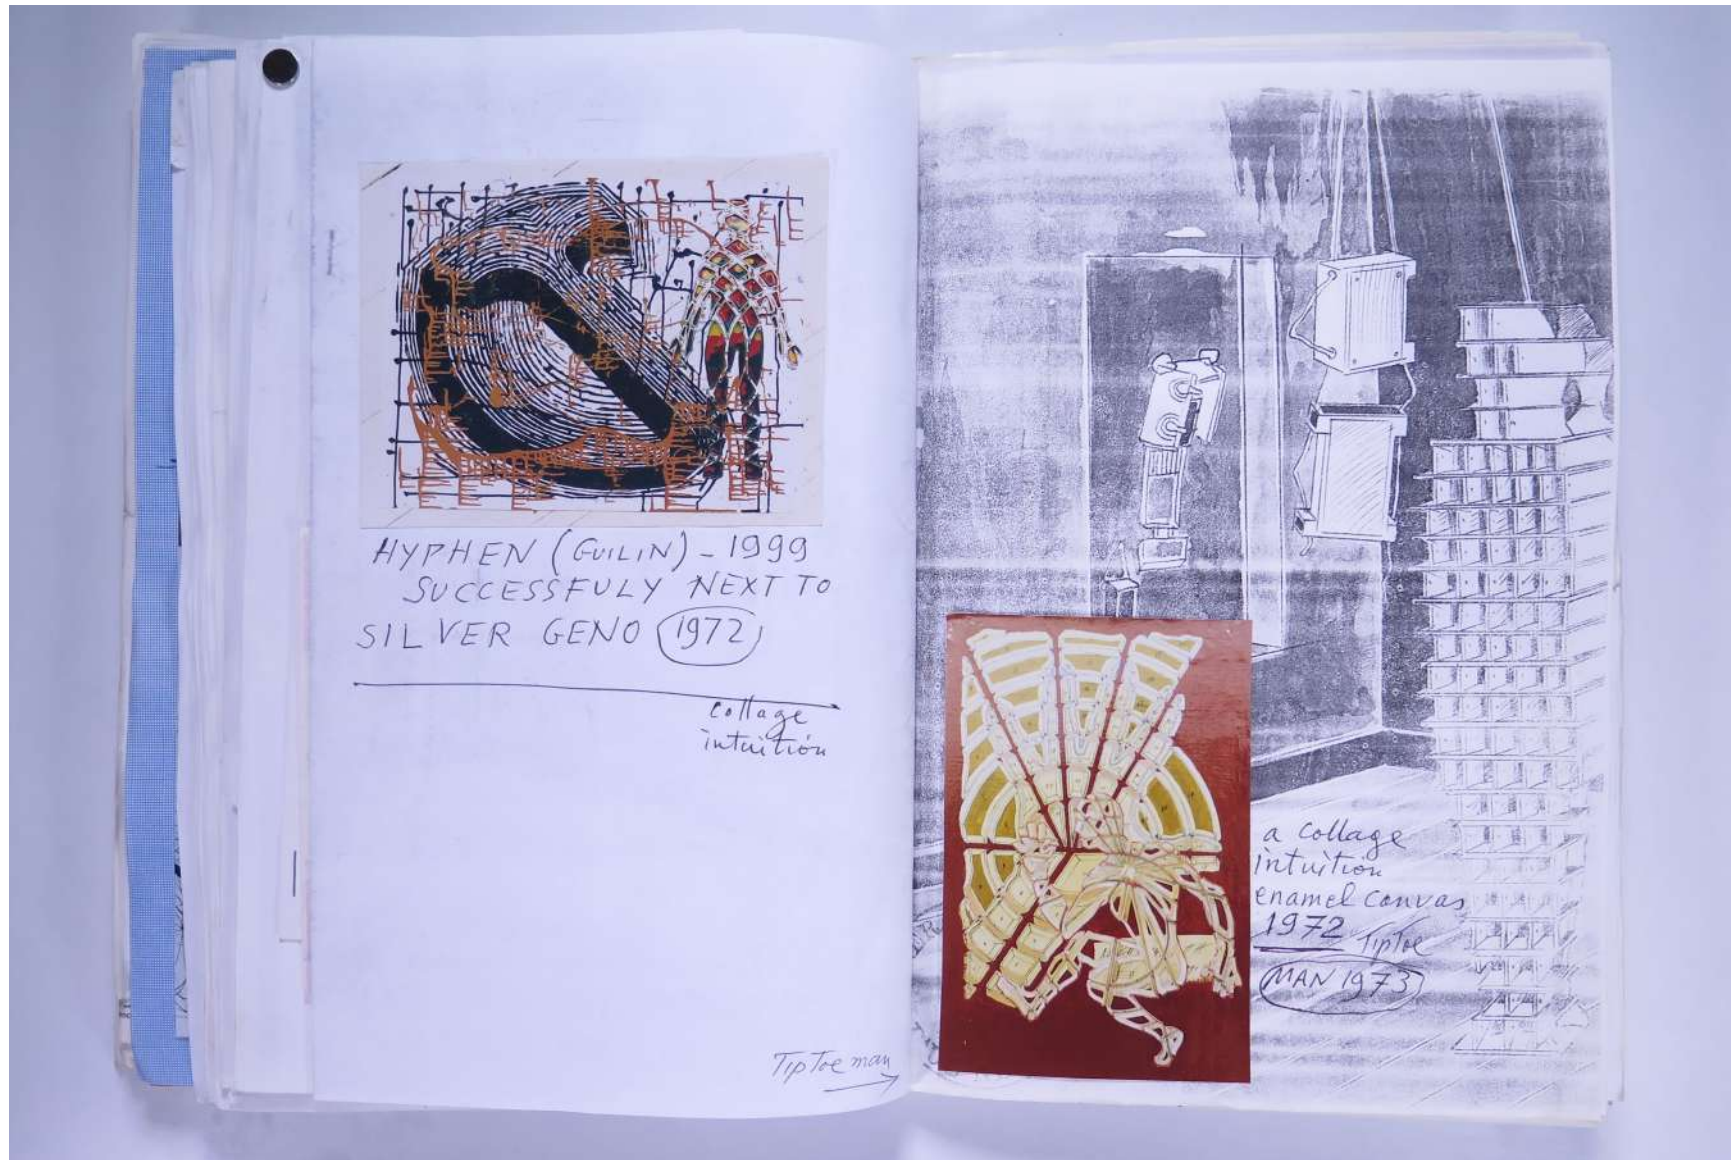 HYPHEN (GUILIN) - 1999
SUCCESSFULY NEXT TO
SILVER GENO 1972
collage
intuition
TipToe man
a collage
intuition
enamel canvas
1972 TipToe
MAN 1973